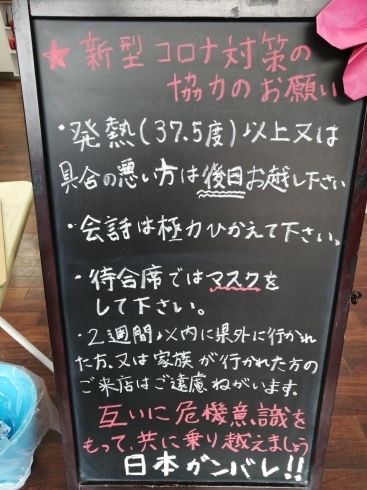 ★新型コロナ対策の
協力のお願い
・発熱(37.5度)以上又は
具合の悪い方は後日お越し下さい
・会話は極力ひかえて下さい。
・待合席ではマスクを
して下さい。
・2週間以内に県外に行かれ
た方、又は家族が行かれた方の
ご来店はご遠慮ねがいます。
互いに危機意識を
もって、共に乗り越えましょう
日本ガンバレ!!